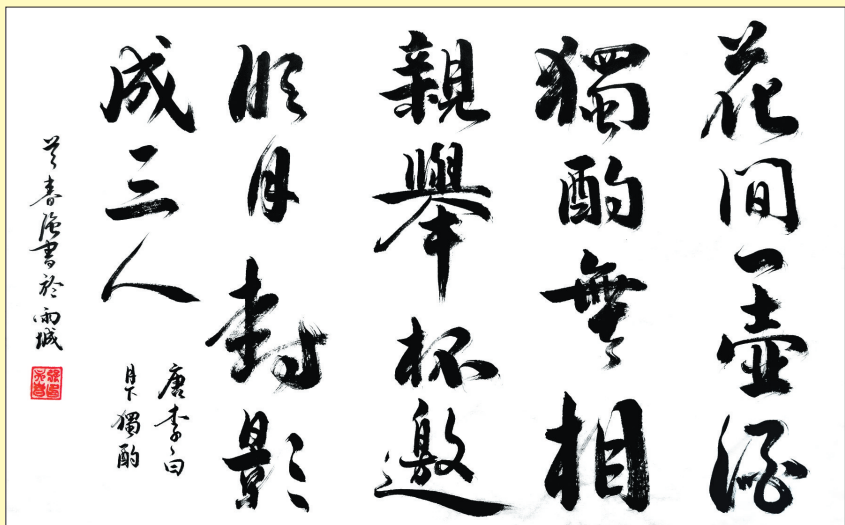 花间一壺酒
獨酌無相
親舉杯邀
明月對影
成三人
唐李白
月下獨酌
春強書於雨城